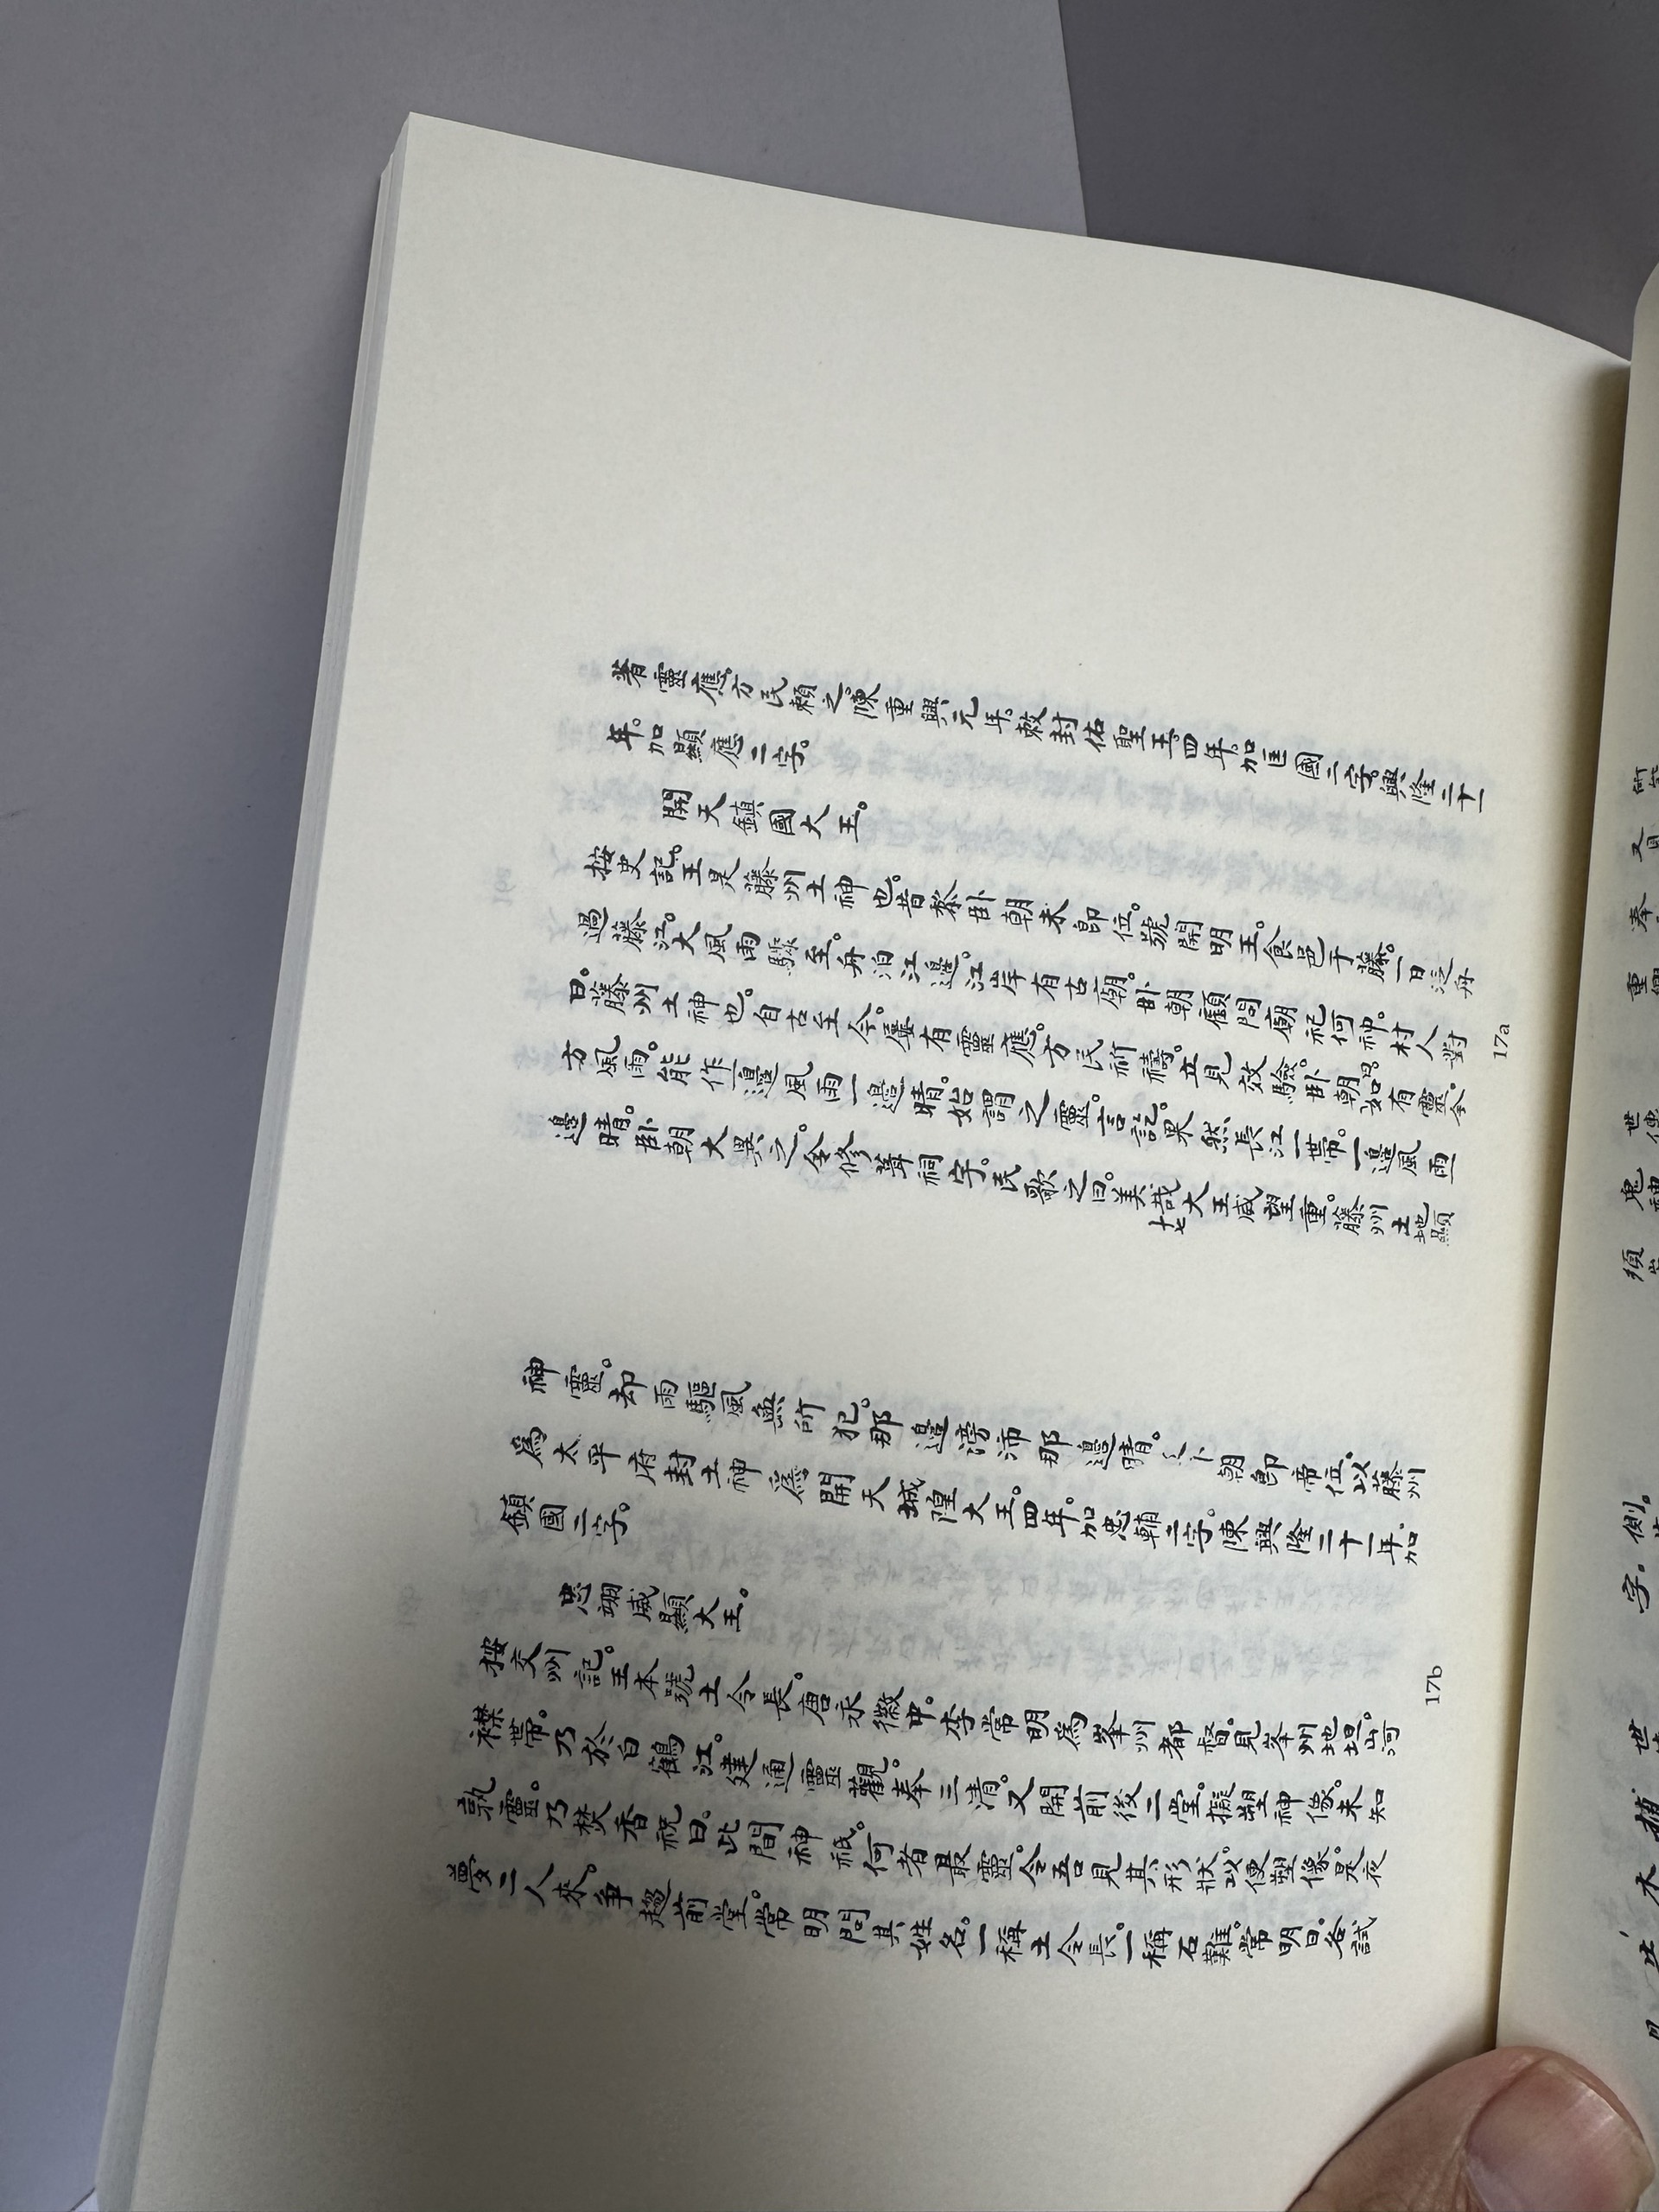 著靈應。方民賴之。陳重興元年。敕封佑聖王。四年。加匡國二字。興隆二十一
年。加顯應二字。
開天鎮國大王。
按史記。王是藤州土神也。昔黎卧朝未即位。號開明王。食邑于藤。一日泛舟
過藤江。大風雨驟至。舟泊江邉。江岸有古廟。卧朝顧問廟祀何神。村人對
曰。藤州土神也。自古至今。屢有靈應。方民祈禱。立見效驗。卧朝曰。如有靈。令
方風雨。能作一邉風雨一邉晴。始謂之靈。言訖。果然長江一帶。一邉風雨一
邉晴。卧朝大異之。令修葺祠宇。民歌之曰。美哉大王威望重。藤州土地顯
十七
17a
神靈。却雨驅風無所犯。那邉滂沛那邉晴。卜朝即帝位。以藤州
為太平府。封土神為開天城隍大王。四年。加忠輔二字。陳興隆二十一年。加
鎮國二字。
忠翊威顯大王。
按交州記。王本號土令長。唐永徽中。李常明為峯州都督。見峯州地坦。山河
襟帶。乃於白鶴江。建通靈觀。奉三清。又開前後二堂。擬塑神像。未知
孰靈。乃焚香祝曰。此間神祇。何者最靈。令吾見其形狀。以便塑像。是夜
夢二人來。争趨前堂。常明問其姓名。一稱土令長。一稱石難。常明曰。各試
17b